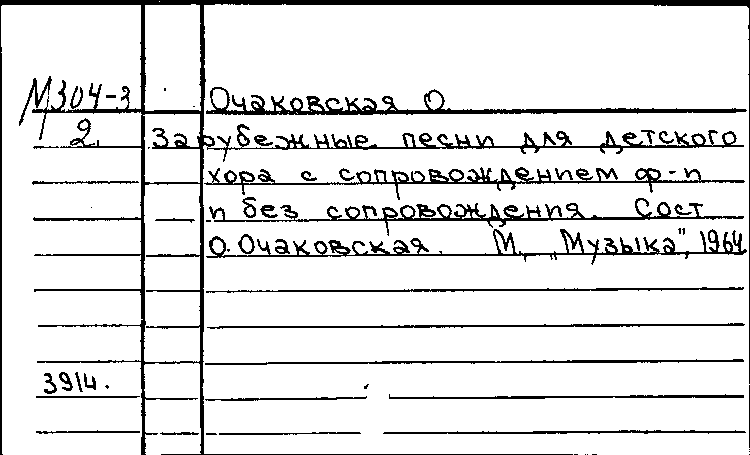 М304-3 Очаковская О.
2. Зарубежные песни для детского
хора с сопровождением ф-п
и без сопровождения. Сост
О. Очаковская. М., „Музыка", 1964
3914.